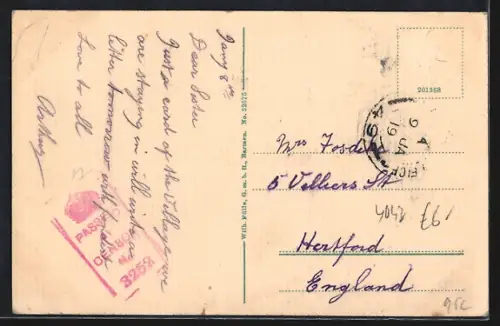 Jany 8th
Dear Sister
Just a card of the village we
are staying in will write a
letter tomorrow with
Love to all
Arthur
PASSED
CENSOR
No
3252
Wilh. Fülle, G. m. b. H., Barmen. No. 12075
201368
9
JA
19
Mrs
5 Velliers St
Hertford
England
197
95c